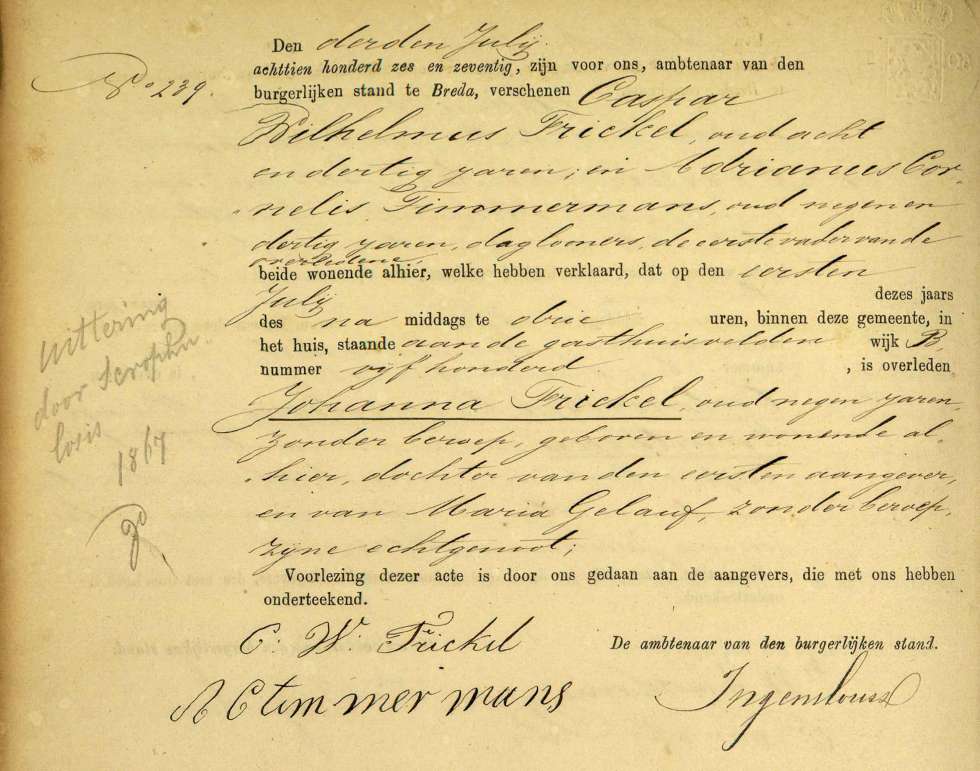 Den derden July
achttien honderd zes en zeventig, zijn voor ons, ambtenaar van den
No 239.
burgerlijken stand te Breda, verschenen Caspar
Wilhelmus Frickel, oud acht
en dertig jaren; en Adrianus Cor-
nelis Timmermans, oud negen en
dertig jaren, daglooners, de eerste vader van de
overledene,
beide wonende alhier, welke hebben verklaard, dat op den eersten
July dezes jaars
des na middags te drie uren, binnen deze gemeente, in
het huis, staande aan de gasthuisvelden wijk B,
nummer vijfhonderd , is overleden
Johanna Frickel, oud negen jaren,
zonder beroep, geboren en wonende al-
hier, dochter van den eersten aangever,
en van Maria Gelauf, zonder beroep,
zyne echtgenoot;
uittering
door Scrophu
losis
1867
Voorlezing dezer acte is door ons gedaan aan de aangevers, die met ons hebben
onderteekend.
C. W. Frickel
De ambtenaar van den burgerlijken stand.
A C timmermans
Ingenhousz